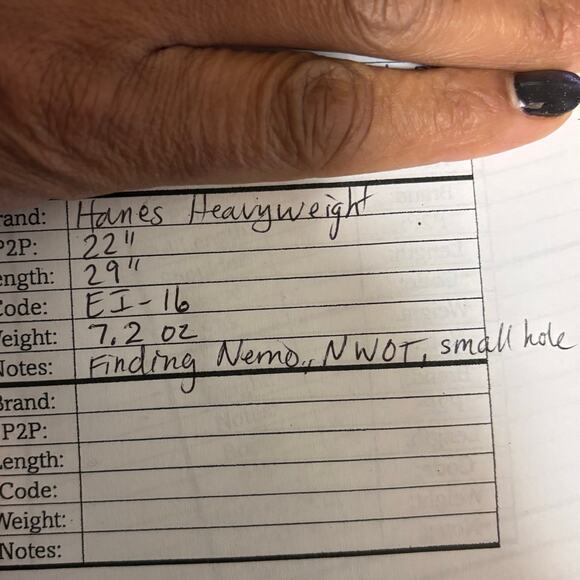 rand: Hanes Heavyweight
P2P: 22"
ength: 29"
Code: EI-16
Weight: 7.2 oz
Notes: Finding Nemo,, NWOT, small hole
Brand:
P2P:
Length:
Code:
Weight:
Notes: